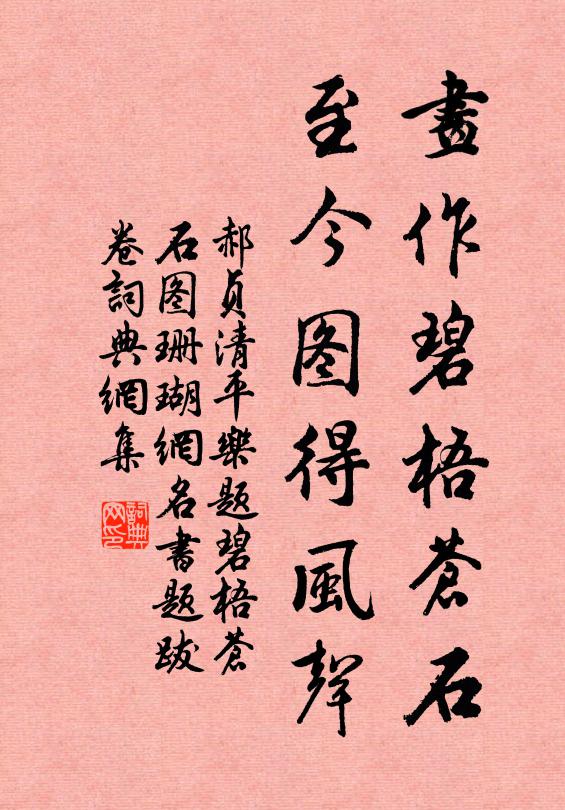 畫作碧梧蒼石
至今图得風聲
郝貞清平樂题碧梧蒼
石图珊瑚網名書题跋
卷詞典網集
詞典
网印